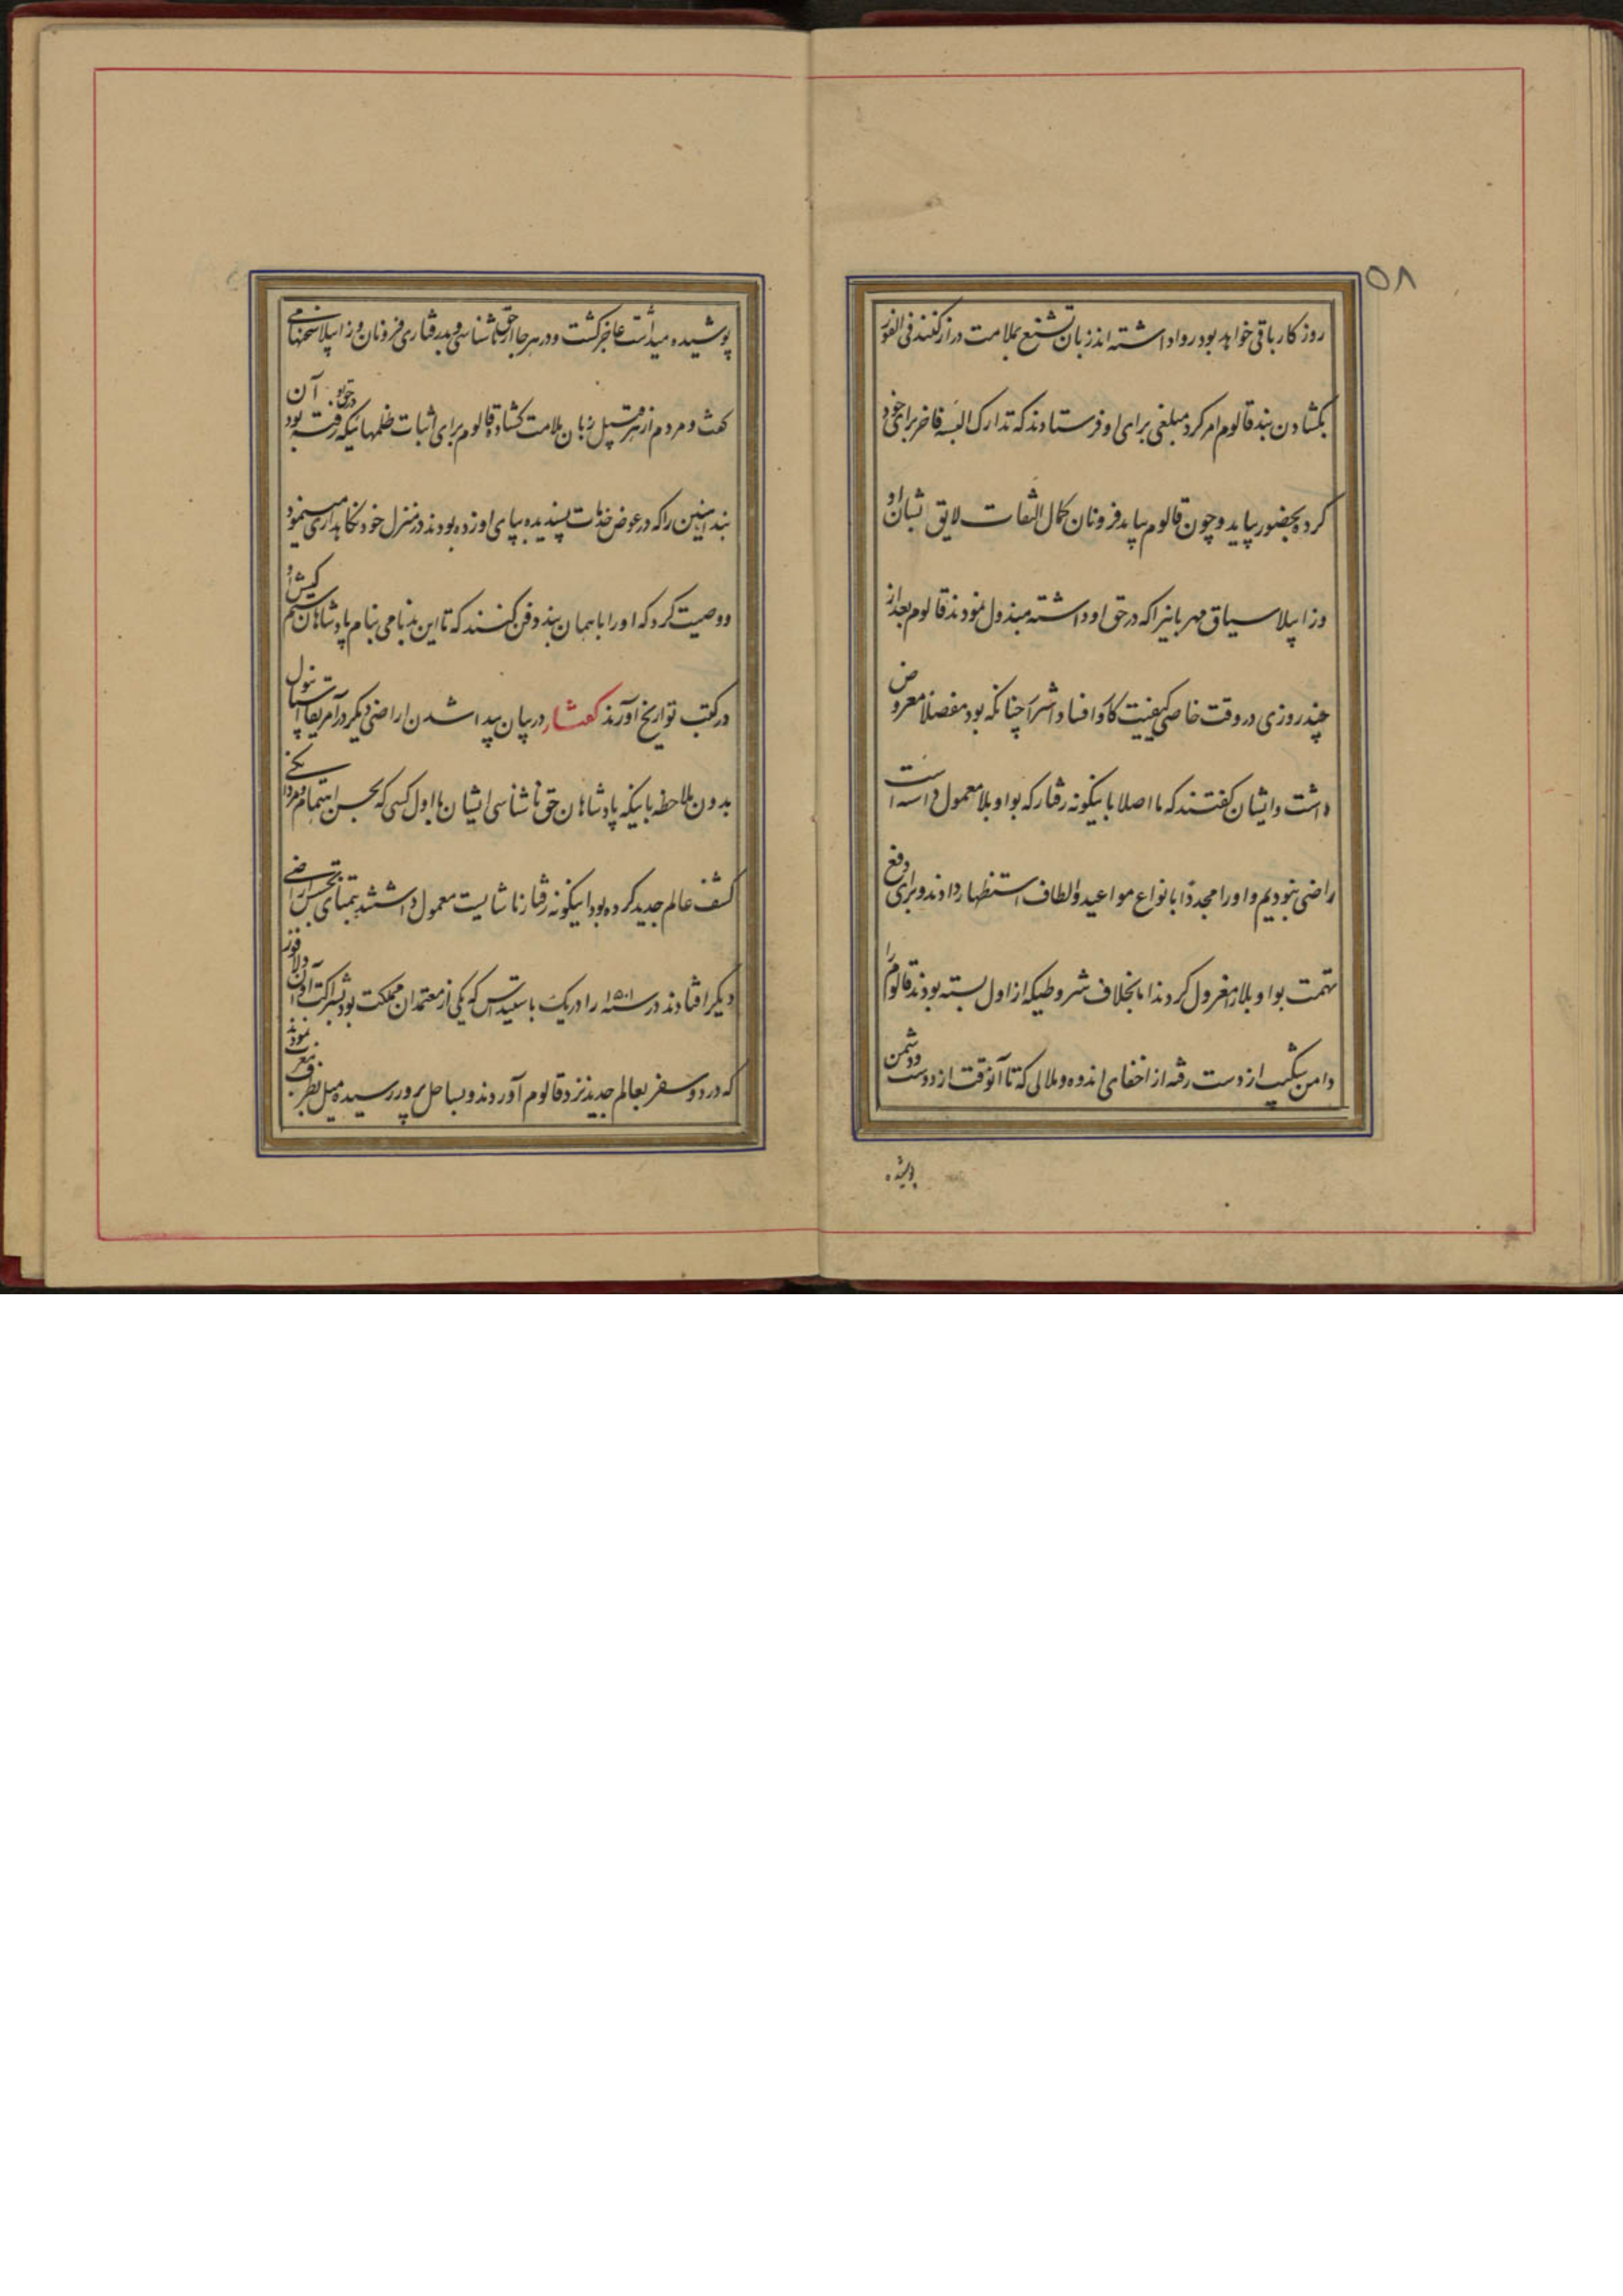 ۵۸
روزکار باقی خواهد بود روا داشته اند زبان تشنیع بملامت دراز کنند فی الفور
بکشادن بند قالوم امر کرد مبلغی برای او فرستادند که تدارک البسه فاخر برای خود
کرده بحضور بیاید و چون قالوم بیاید فرونان کمال التفات لایق بشان او
و زابیلا سیاق مهربانیرا که در حق او داشته مبذول نمودند قالوم بعد از
چند روزی در وقت خاصی کیفیت کاوا فساد اشرا چنانکه بود مفصلا معروض
داشت و ایشان کفتند که ما اصلا باینکونه رفتار که بواوبلا معمول داشته است
راضی نبودیم و او را مجددا بانواع مواعید و الطاف استظهار دادند و برای دفع
تهمت بواوبلا را معزول کردند اما بخلاف شروطیکه از اول بسته بودند قالوم را
دامن شکیب از دست رفته از اخفای اندوه و ملالی که تا آنوقت از دوست و دشمن
پوشیده
پوشیده میداشت عاجز کشت و در هر جا از حق ناشناسی و بدرفتاری فرونان و زابیلا سخنها می
کفت و مردم از هر قبیل زبان ملامت کشاده قالوم برای اثبات ظلمهائیکه در حق او رفته بود آن
بند آهنین را که در عوض خدمات پسندیده بپای او زده بودند در منزل خود نکاهداری مینمود
و وصیت کرد که او را با همان بند دفن کنند که تا این بدنامی بنام پادشاهان ستم کیش او
در کتب تواریخ آورند کفتار در بیان پیدا شدن اراضی دیکر در آمریقا اسپانیول
بدون ملاحظه باینکه پادشاهان حق ناشناسی ایشان با اول کسی که بحسن اهتمام و مردانکی
کشف عالم جدید کرده بود اینکونه رفتار ناشایست معمول داشتند بتمنای تجسس اراضی
دیکر افتادند در سنه ۱۵۰۱ رادریک باستیداس که یکی از معتمدان مملکت بود بشراکت
که در دو سفر بعالم جدید نزد قالوم آوردند و بساحل پرور رسیده میل بطرف مغرب نمودند